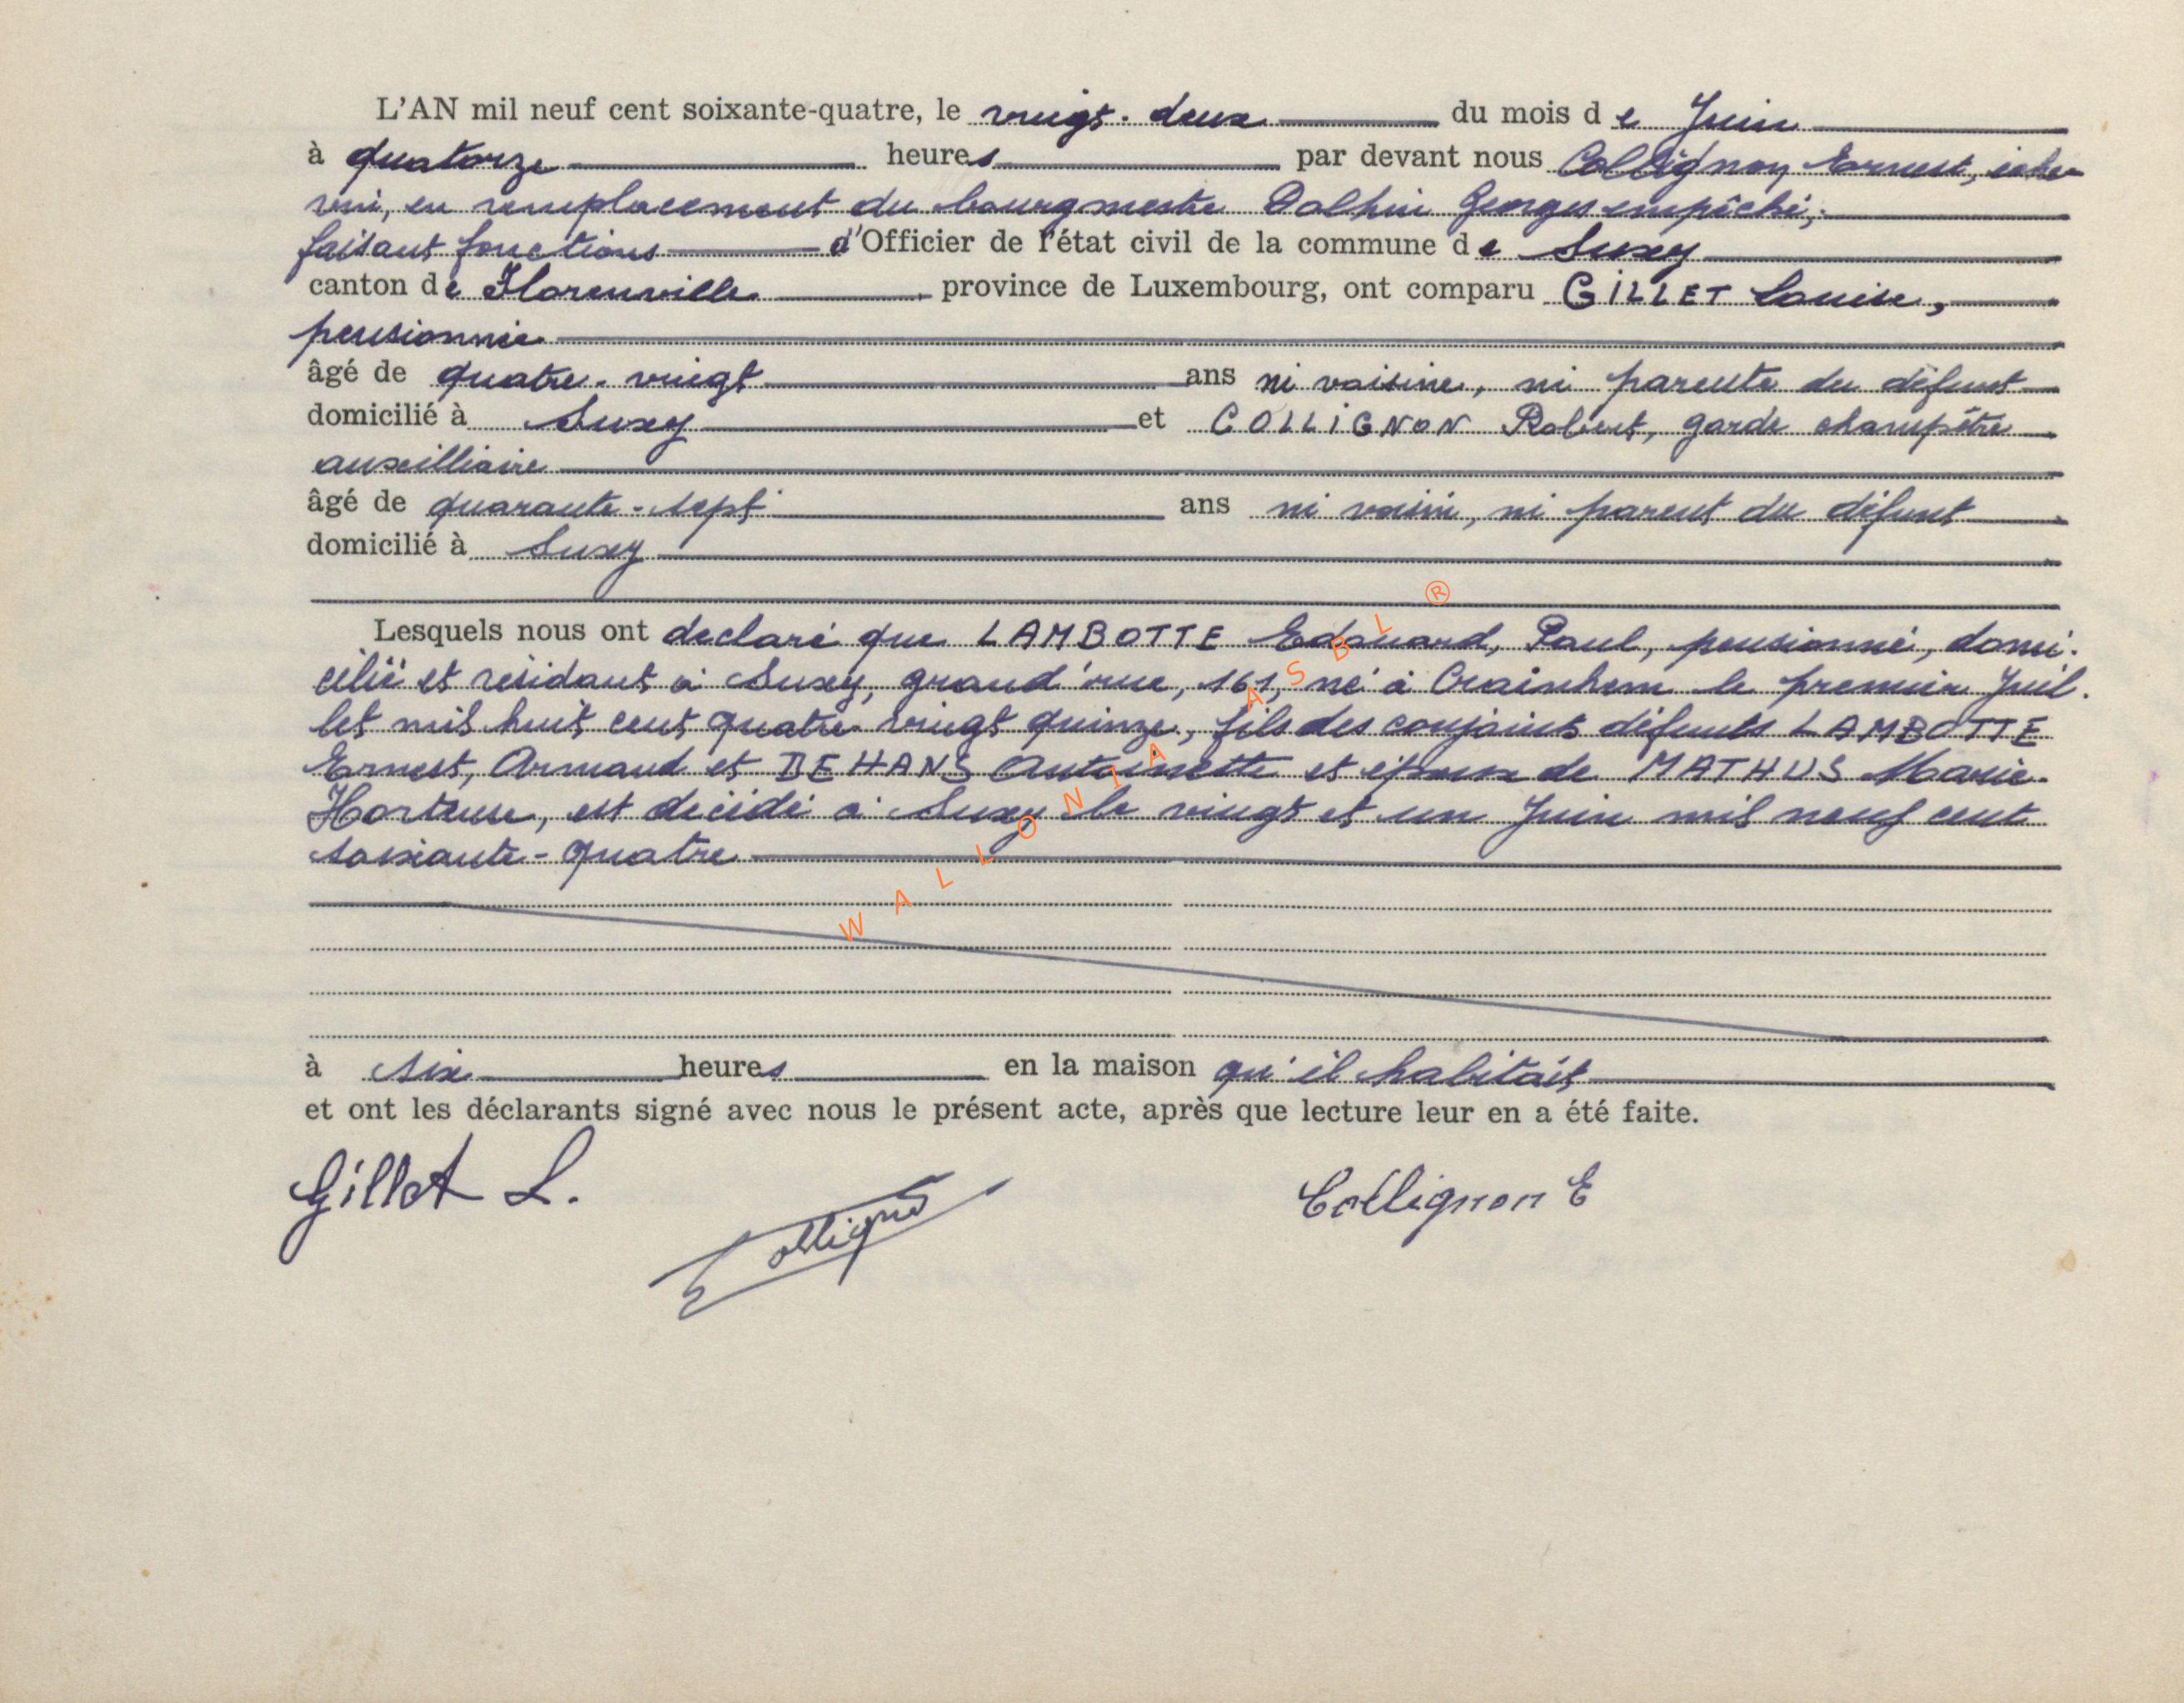 L'AN mil neuf cent soixante-quatre, le vingt-deux du mois de Juin
à quatorze heures par devant nous Collignon Ernest, éche
vin, en remplacement du bourgmestre Dalhin Georges empêché,
faisant fonctions d'Officier de l'état civil de la commune de Suxy
canton de Florenville, province de Luxembourg, ont comparu GILLET Louise,
pensionnée
âgé de quatre-vingt ans ni voisine, ni parente du défunt
domicilié à Suxy et COLLIGNON Robert, garde champêtre
auxilliaire
âgé de quarante-sept ans ni voisin, ni parent du défunt
domicilié à Suxy
Lesquels nous ont declaré que LAMBOTTE Edouard, Paul, pensionné, domi-
cilié et résidant à Suxy, grand'rue, 161, né à Crainhem le premier Juil-
let mil huit cent quatre-vingt quinze, fils des conjoints défunts LAMBOTTE
Ernest, Armand et DEHANS Antoinette et époux de MATHUS Marie-
Hortense, est décédé à Suxy le vingt et un Juin mil neuf cent
soixante-quatre
à six heures en la maison qu'il habitait
et ont les déclarants signé avec nous le présent acte, après que lecture leur en a été faite.
Gillet L.
Collignon
Collignon E
WALLONIA ASBL ®